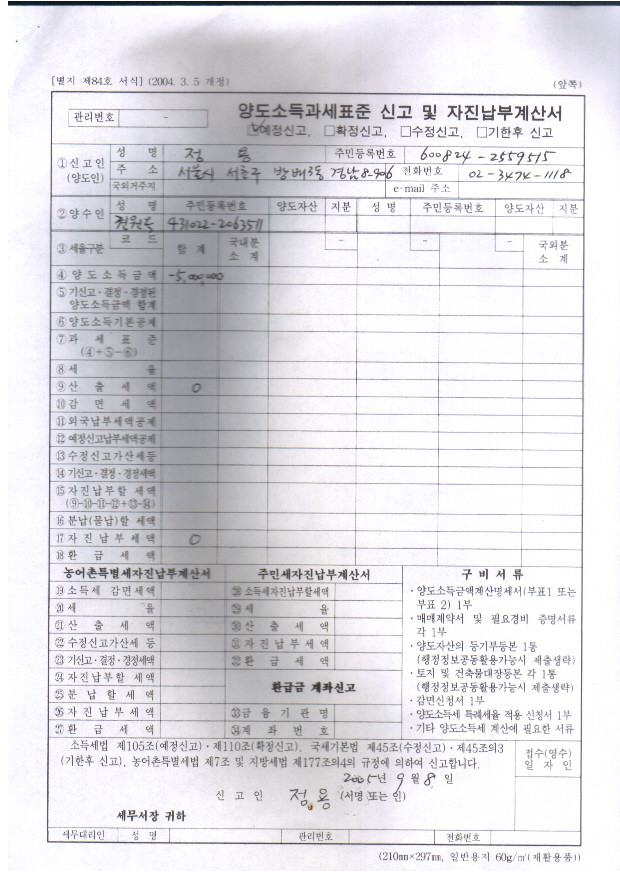 [별지 제84호 서식] (2004. 3. 5 개정)
(앞쪽)
관리번호 -
양도소득과세표준 신고 및 자진납부계산서
☑예정신고, □확정신고, □수정신고, □기한후 신고
①신고인 (양도인)
성 명 정 용 주민등록번호 600824-2559515
주 소 서울시 서초구 방배3동 경남8-906 전화번호 02-3474-1118
국외거주지 e-mail 주소
②양수인
성 명 주민등록번호 양도자산 지분 성 명 주민등록번호 양도자산 지분
431022-2063511
③세율구분 코 드 합 계 국내분 소 계 - - - 국외분 소 계
④양도소득금액 -5,000,000
⑤기신고·결정·경정된 양도소득금액 합계
⑥양도소득기본공제
⑦과 세 표 준 (④+⑤-⑥)
⑧세 율
⑨산 출 세 액 0
⑩감 면 세 액
⑪외국납부세액공제
⑫예정신고납부세액공제
⑬수정신고가산세등
⑭기신고·결정·경정세액
⑮자진납부할 세액 (⑨-⑩-⑪-⑫+⑬-⑭)
16분납(물납)할 세액
17자 진 납 부 세 액 0
18환 급 세 액
농어촌특별세자진납부계산서
⑲소득세 감면세액
⑳세 율
㉑산 출 세 액
㉒수정신고가산세 등
㉓기신고·결정·경정세액
㉔자진납부할 세액
㉕분 납 할 세 액
㉖자 진 납 부 세 액
㉗환 급 세 액
주민세자진납부계산서
㉘소득세자진납부할세액
㉙세 율
㉚산 출 세 액
㉛자 진 납 부 세 액
㉜환 급 세 액
환급금 계좌신고
㉝금 융 기 관 명
㉞계 좌 번 호
구 비 서 류
·양도소득금액계산명세서(부표1 또는
부표 2) 1부
·매매계약서 및 필요경비 증명서류
각 1부
·양도자산의 등기부등본 1통
(행정정보공동활용가능시 제출생략)
·토지 및 건축물대장등본 각 1통
(행정정보공동활용가능시 제출생략)
·감면신청서 1부
·양도소득세 특례세율 적용 신청서 1부
·기타 양도소득세 계산에 필요한 서류
소득세법 제105조(예정신고)·제110조(확정신고), 국세기본법 제45조(수정신고)·제45조의3
(기한후 신고), 농어촌특별세법 제7조 및 지방세법 제177조의4의 규정에 의하여 신고합니다.
2005년 9월 8일
신 고 인 정 용 (서명 또는 인)
세무서장 귀하
접수(영수)
일 자 인
세무대리인 성 명 관리번호 전화번호
(210㎜×297㎜, 일반용지 60g/㎡(재활용품))